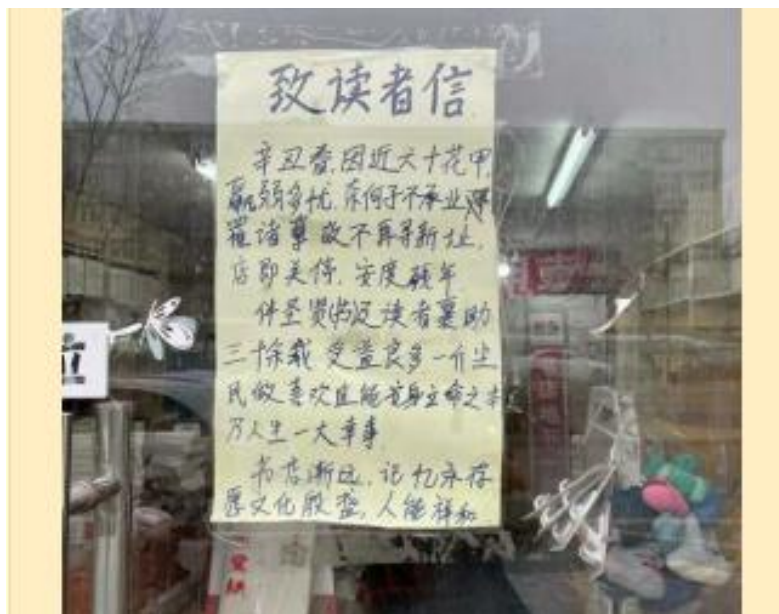 致读者信
辛丑春,因近六十花甲,
羸弱多忧,奈何子不承业,
罹诸事故不再寻新址,
店即关停,安度颐年
伴圣贤书及读者襄助
三十余载 受益良多 一介生
民做喜欢且能安身立命之本
乃人生一大幸事
书店渐远,记忆永存
愿文化殷盈,人能祥和